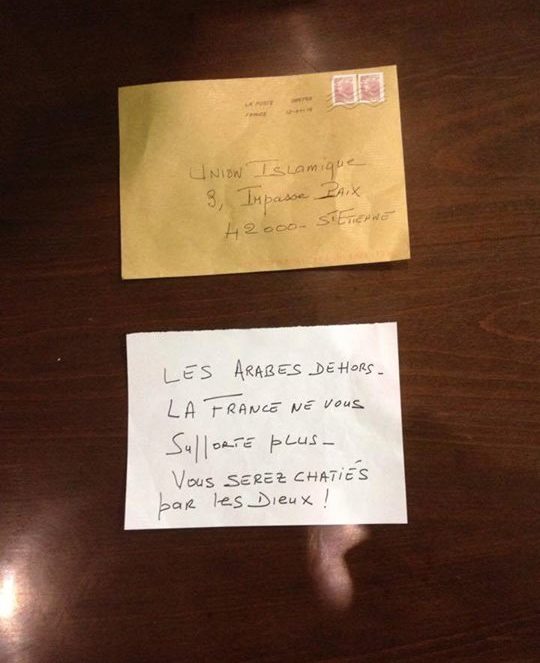 LA POSTE
FRANCE
UNION ISLAMIQUE
9, Impasse PAIX
42000- ST ETIENNE
LES ARABES DEHORS_
LA FRANCE NE VOUS
SUPPORTE PLUS_
VOUS SEREZ CHATIÉS
par les DIEUX !